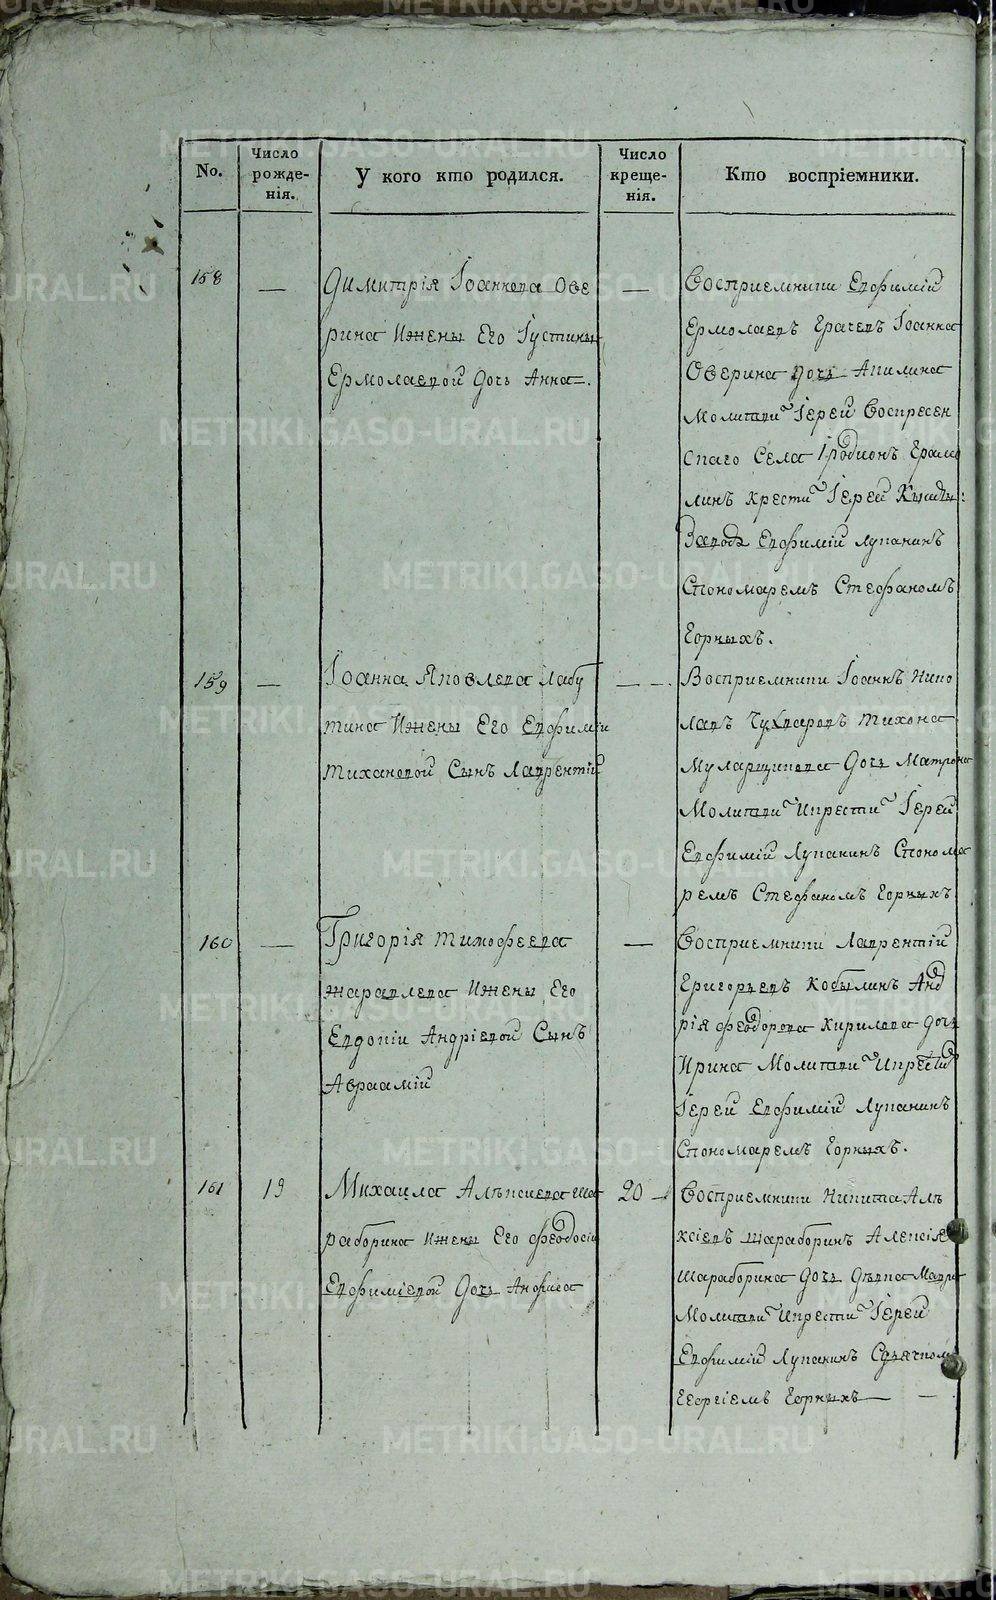 No.
Число рожде-нія.
У кого кто родился.
Число креще-нія.
Кто воспріемники.
158
—
Димитрія Іоаннова Ове
рина Ижены Его Іустины
Ермолаевой Дочь Анна.
—
Восприемники Евфимій
Ермолаевъ Грачевъ Іоанна
Оверина дочь Акилина
Молитви Іерей Воскресен
скаго Села Іродионъ
линъ крести Іерей
Завода Евфимій Лупанинъ
Спономаремъ Стефаномъ
Горныхъ.
159
—
Іоанна Яковлева Лабу
тина Ижены Его Евфиміи
Тихановой Сынъ Лаврентій
— —.
Восприемники Іоаннъ Нико
лаевъ Тихона
Муларщикова Дочь Матрона
Молитви Икрести Іерей
Евфимій Лупанинъ Спонома
ремъ Стефаномъ Горныхъ
160
—
Григорія Тимофеева
Жаравлева Ижены Его
Евдокіи Андріевой Сынъ
Авраамій
—
Восприемники Лаврентій
Григорьевъ Кобылинъ Анд
рія Феодорова Кирилова дочь
Ирина Молитви Икрести
Іерей Евфимій Лупанинъ
Спономаремъ Горныхъ.
161
19
Михаила Алѣксиева Ша
раборина Ижены Его Феодосіи
Евфиміевой Дочь Анфиса
20
Восприемники Никита Алѣ
ксіевъ Шараборинъ Алексія
Шараборина Дочь Дѣвка Мавра
Молитви Икрести Іерей
Евфимій Лупанинъ Сдьячкомъ
Георгіемъ Горныхъ — —
METRIKI.GASO-URAL.RU